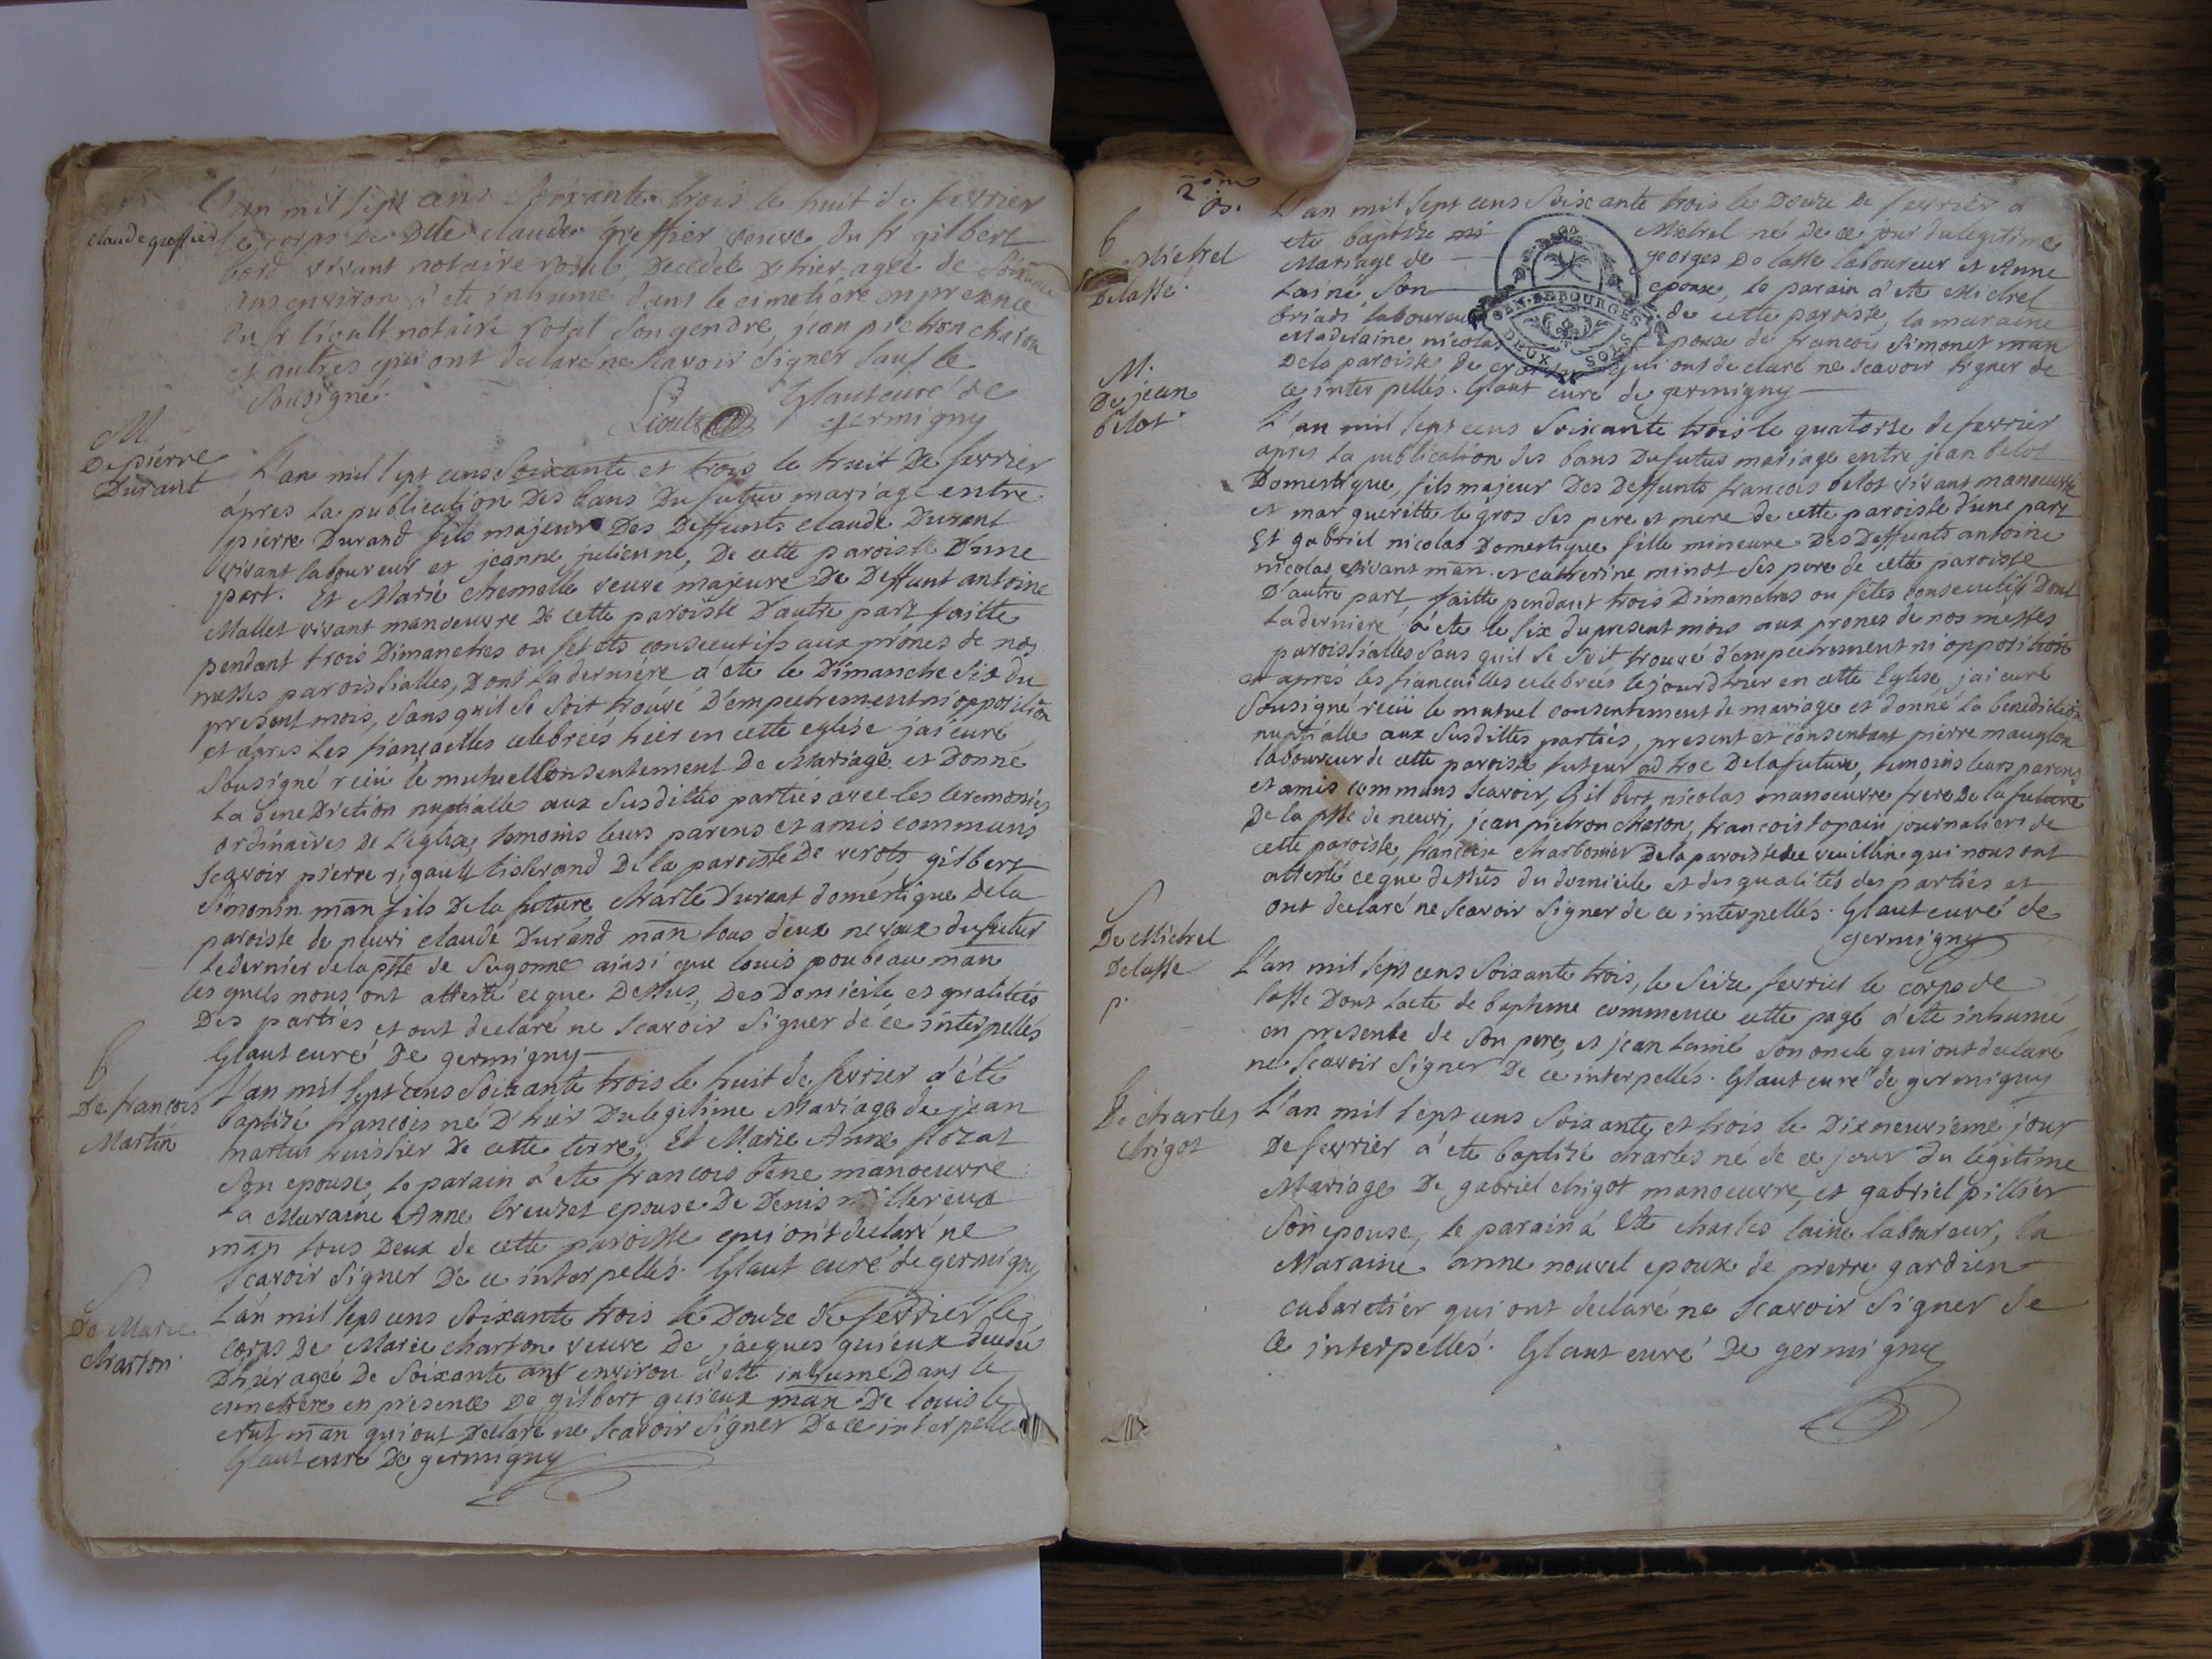 claude greffier
L'an mil sept cens soixante trois le huit de fevrier
le corps de Dlle claude greffier veuve du sr gilbert
bord vivant notaire roial, decedée d'hier agée de
ans environ a ete inhumé dans le cimetiere en presence
du sr lioult notaire roial son gendre, jean pichon charon
et autres qui ont declaré ne scavoir signer sauf le
sousigné.
Lioult Glaut curé de
germigny
M
De pierre
Durant
L'an mil sept cens soixante et trois le huit De fevrier
apres la publication Des bans Du futur mariage entre
pierre Durand fils majeur Des Deffunts claude Durant
vivant laboureur et jeanne julienne, De cette paroisse D'une
part. Et Marie chemelle veuve majeure De Deffunt antoine
Mallet vivant manoeuvre De cette paroisse D'autre part faitte
pendant trois Dimanches ou fetes consecutifs aux prônes de nos
messes paroissialles, Dont la derniére a ete le Dimanche six du
present mois, sans quil se soit trouvé D'empechement ni opposition
et apres Les fiançailles celebreés hier en cette eglise j'ai curé
sousigné réçu le mutuel consentement De Mariage et Donné
La bénéDiction nuptialle aux susdittes parties avec les ceremonies
ordinaires De L'eglise, temoins leurs parens et amis communs
scavoir pierre rigault tisserand De la paroisse De verots, gilbert
simonin man fils De la future charle Durant domestique De la
paroisse de neuvi claude Durand man tous deux neveux du futur
le dernier de la psse de Sagonne ainsi que louis poubeau man
les quels nous ont attesté ce que Dessus, Des Domicile et qualités
Des parties et ont declaré ne scavoir signer de ce interpellés
Glaut curé De germigny
b
De francois
Martin
L'an mil sept cens soixante trois le huit de fevrier a été
baptisé francois né D'hier Du legitime Mariage de jean
martin huissier De cette terre, Et Marie Anne
son epouse, le parain a ete francois bene manoeuvre
La Maraine Anne creuzet epouse De Denis millereux
man tous Deux de cette paroisse qui ont declaré ne
scavoir signer De ce interpellés. Glaut curé de germigny
S
De Marie
charton
L'an mil sept cens soixante trois le Douze de fevrier le
corps De Marie charton veuve De jacques quieux decedée
D'hier ageé De soixante ans environ a ete inhumé Dans le
cimetiere en presence De gilbert quieux man De louis le
man qui ont Declaré ne scavoir signer De ce interpellés
Glaut curé De germigny
2
b
Michel
Delasse
L'an mil sept cens soixante trois le Douze De fevrier a
ete baptisé Michel né De ce jour du legitime
Mariage de georges De lasse laboureur et Anne
Lainé, son epouse, Le parain a ete Michel
laboureur de cette paroisse, la maraine
Madelaine nicolas epouse de francois simonet man
De la paroisse de qui ont declaré ne scavoir signer de
ce interpellés. Glaut curé de germigny
M.
De jean
belot
L'an mil sept cens soixante trois le quatorse de fevrier
apres La publication des bans Du futur mariage entre jean belot
Domestique, fils majeur Des Deffunts francois belot vivant manoeuvre
et margueritte le gros ses pere et mere de cette paroisse d'une part
Et gabriel nicolas Domestique fille mineure Des Deffunts antoine
nicolas vivant man. et catherine minot ses pere de cette paroisse
D'autre part faitte pendant trois Dimanches ou fetes consecutifs Dont
La derniere a ete le six du present mois aux prones de nos messes
paroissialles sans quil se soit trouvé d'empechement ni opposition
et aprés les fiancailles celebreés le jour d'hier en cette Eglise, j'ai curé
sousigné réçu le mutuel consentement de mariage et donné la benediction
nuptialle aux susdittes partiés, present et consentant pierre mauglon
laboureur de cette paroisse tuteur ad hoc De la future, temoins leurs parens
et amis communs scavoir, Gilbert nicolas manoeuvre frere De la future
De la psse de neuvi, jean pichon charon, francois topain journaliers de
cette paroisse, francois charbonier De la paroisse de veuillin qui nous ont
attesté ce que dessus du domicile et des qualités des partiés et
ont declaré ne scavoir signer de ce interpellés. Glaut curé de
germigny
S
De Michel
Delasse
p.
L'an mil sept cens soixante trois, le seize fevrier le corps de
lasse Dont lacte de baptême commence cette page a ete inhumé
en presente de son pere, et jean Lainé son oncle qui ont declaré
ne scavoir signer De ce interpellés. Glaut curé de germigny
B
De charles
chigot
L'an mil sept cens soixante et trois le Dixneuvieme jour
De fevrier a ete baptisé charles né de ce jour du legitime
Mariage De gabriel chigot manoeuvre, et gabriel pillier
son epouse, le parain a Ete charles laine laboureur, la
Maraine anne nouvel epouse de pierre gardien
cabaretier qui ont declaré ne scavoir signer de
ce interpellés. Glaut curé De germigny
GEN. DE BOURGES
DEUX SOLS